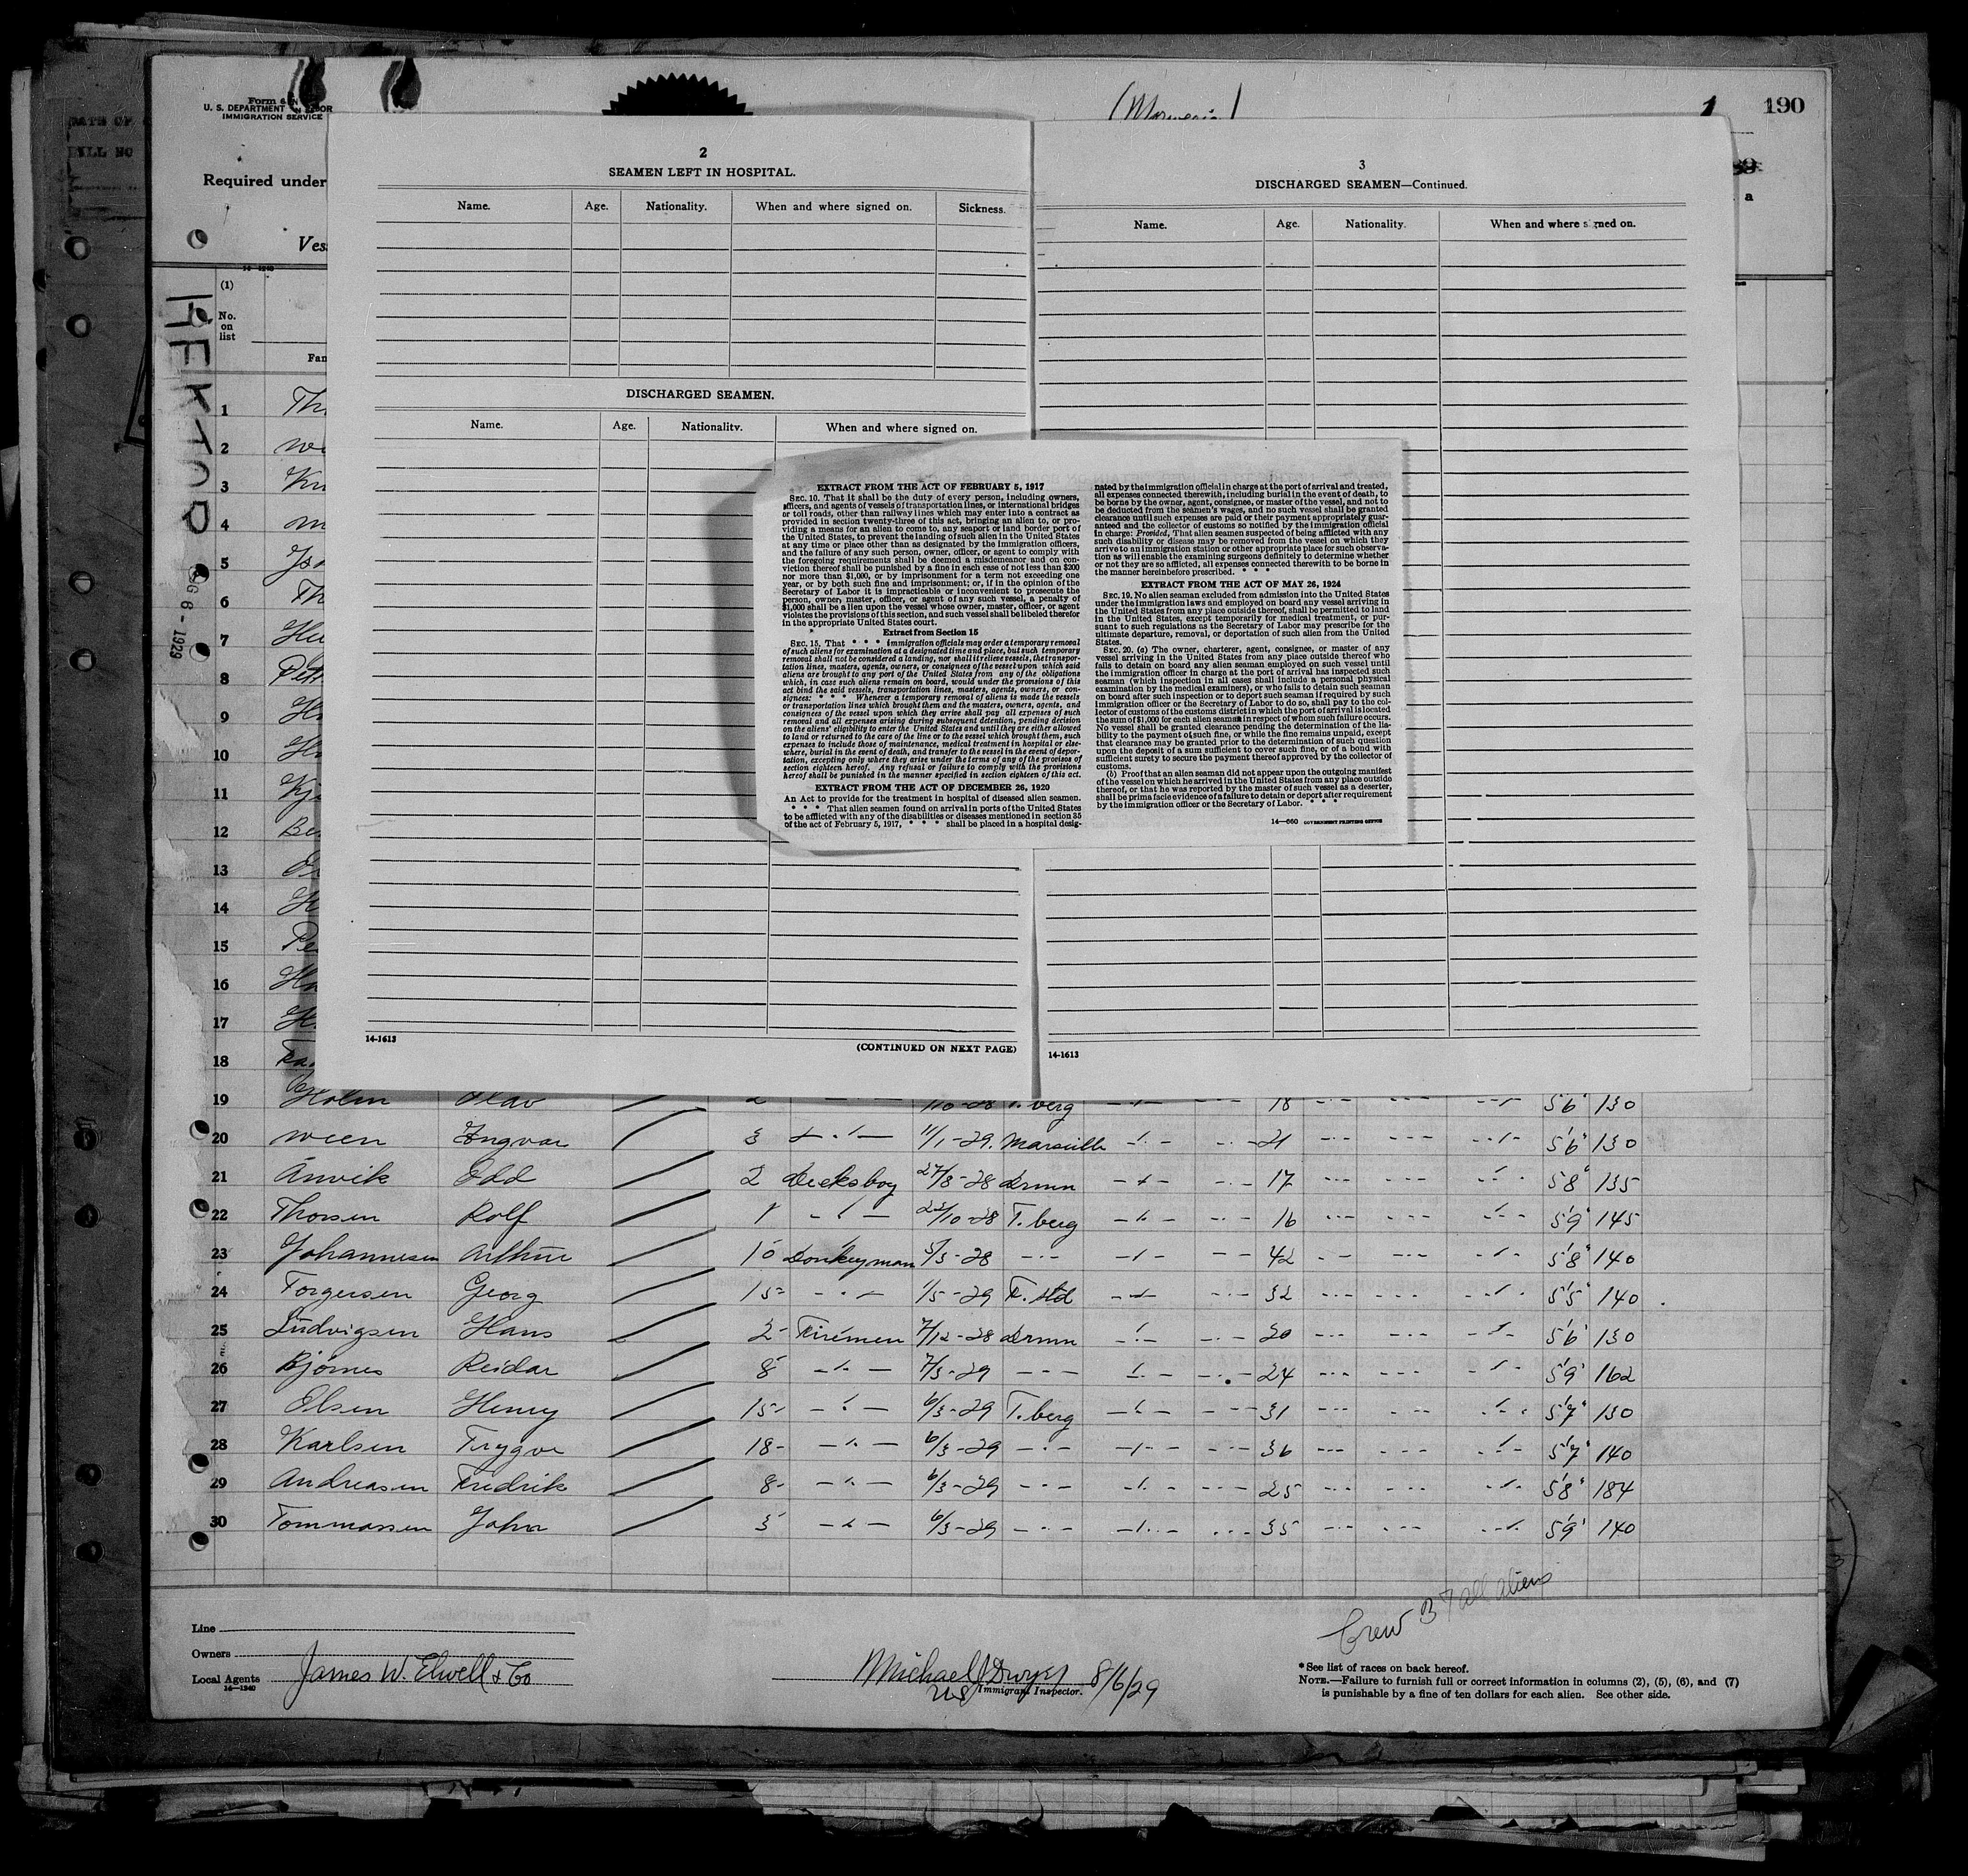 190
Form 6
U. S. DEPARTMENT
IMMIGRATION SERVICE
Required under
(1)
No.
on
list
HEKTOR
6 - 1929
2
SEAMEN LEFT IN HOSPITAL.
Name. Age. Nationality. When and where signed on. Sickness.
DISCHARGED SEAMEN.
Name. Age. Nationality. When and where signed on.
14-1613
(CONTINUED ON NEXT PAGE)
3
DISCHARGED SEAMEN—Continued.
Name. Age. Nationality. When and where signed on.
14-1613
EXTRACT FROM THE ACT OF FEBRUARY 5, 1917
SEC. 10. That it shall be the duty of every person, including owners,
officers, and agents of vessels of transportation lines, or international bridges
or toll roads, other than railway lines which may enter into a contract as
provided in section twenty-three of this act, bringing an alien to, or pro-
viding a means for an alien to come to, any seaport or land border port of
the United States, to prevent the landing of such alien in the United States
at any time or place other than as designated by the immigration officers,
and the failure of any such person, owner, officer, or agent to comply with
the foregoing requirements shall be deemed a misdemeanor and on con-
viction thereof shall be punished by a fine in each case of not less than $200
nor more than $1,000, or by imprisonment for a term not exceeding one
year, or by both such fine and imprisonment; or, if in the opinion of the
Secretary of Labor it is impracticable or inconvenient to prosecute the
person, owner, master, officer, or agent of any such vessel, a penalty of
$1,000 shall be a lien upon the vessel whose owner, master, officer, or agent
violates the provisions of this section, and such vessel shall be libeled therefor
in the appropriate United States court.
Extract from Section 15
SEC. 15. That * * * immigration officials may order a temporary removal
of such aliens for examination at a designated time and place, but such temporary
removal shall not be considered a landing, nor shall it relieve vessels, the transpor-
tation lines, masters, agents, owners, or consignees of the vessel upon which said
aliens are brought to any port of the United States from any of the obligations
which, in case such aliens remain on board, would under the provisions of this
act bind the said vessels, transportation lines, masters, agents, owners, or con-
signees: * * * Whenever a temporary removal of aliens is made the vessels
or transportation lines which brought them and the masters, owners, agents, and
consignees of the vessel upon which they arrive shall pay all expenses of such
removal and all expenses arising during subsequent detention, pending decision
on the aliens' eligibility to enter the United States and until they are either allowed
to land or returned to the care of the line or to the vessel which brought them, such
expenses to include those of maintenance, medical treatment in hospital or else-
where, burial in the event of death, and transfer to the vessel in the event of depor-
tation, excepting only where they arise under the terms of any of the provisos of
section eighteen hereof. Any refusal or failure to comply with the provisions
hereof shall be punished in the manner specified in section eighteen of this act.
EXTRACT FROM THE ACT OF DECEMBER 26, 1920
An Act to provide for the treatment in hospital of diseased alien seamen.
* * * That alien seamen found on arrival in ports of the United States
to be afflicted with any of the disabilities or diseases mentioned in section 35
of the act of February 5, 1917, * * * shall be placed in a hospital desig-
nated by the immigration official in charge at the port of arrival and treated,
all expenses connected therewith, including burial in the event of death, to
be borne by the owner, agent, consignee, or master of the vessel, and not to
be deducted from the seamen's wages, and no such vessel shall be granted
clearance until such expenses are paid or their payment appropriately guar-
anteed and the collector of customs so notified by the immigration official
in charge: Provided, That alien seamen suspected of being afflicted with any
such disability or disease may be removed from the vessel on which they
arrive to an immigration station or other appropriate place for such observa-
tion as will enable the examining surgeons definitely to determine whether
or not they are so afflicted, all expenses connected therewith to be borne in
the manner hereinbefore prescribed. * * *
EXTRACT FROM THE ACT OF MAY 26, 1924
SEC. 19. No alien seaman excluded from admission into the United States
under the immigration laws and employed on board any vessel arriving in
the United States from any place outside thereof, shall be permitted to land
in the United States, except temporarily for medical treatment, or pur-
suant to such regulations as the Secretary of Labor may prescribe for the
ultimate departure, removal, or deportation of such alien from the United
States.
SEC. 20. (a) The owner, charterer, agent, consignee, or master of any
vessel arriving in the United States from any place outside thereof who
fails to detain on board any alien seaman employed on such vessel until
the immigration officer in charge at the port of arrival has inspected such
seaman (which inspection in all cases shall include a personal physical
examination by the medical examiners), or who fails to detain such seaman
on board after such inspection or to deport such seaman if required by such
immigration officer or the Secretary of Labor to do so, shall pay to the col-
lector of customs of the customs district in which the port of arrival is located
the sum of $1,000 for each alien seaman in respect of whom such failure occurs.
No vessel shall be granted clearance pending the determination of the lia-
bility to the payment of such fine, or while the fine remains unpaid, except
that clearance may be granted prior to the determination of such question
upon the deposit of a sum sufficient to cover such fine, or of a bond with
sufficient surety to secure the payment thereof approved by the collector of
customs.
(b) Proof that an alien seaman did not appear upon the outgoing manifest
of the vessel on which he arrived in the United States from any place outside
thereof, or that he was reported by the master of such vessel as a deserter,
shall be prima facie evidence of a failure to detain or deport after requirement
by the immigration officer or the Secretary of Labor. * * *
14—660 GOVERNMENT PRINTING OFFICE
1
2
3
4
5
6
7
8
9
10
11
12
13
14
15
16
17
18
19 Holm Olav 18 5'6" 130
20 Ween Yngvar 3 11/1-29. Marseille 21 5'6" 130
21 Anvik Odd 2 Decksboy 27/8-28 Drmn 17 5'8" 135
22 Thorsen Rolf 1 22/10-28 T.berg 16 5'9" 145
23 Johannesen Arthur 10 Donkeyman 5/3-28 42 5'8" 140
24 Torgersen Georg 15 1/5-29 F.std 32 5'5" 140
25 Ludvigsen Hans 2 Firemen 7/12-28 Drmn 20 5'6" 130
26 Bjørnes Reidar 8 7/3-29 24 5'9" 162
27 Olsen Henry 15 6/3-29 T.berg 31 5'7" 130
28 Karlsen Trygve 18 6/3-29 36 5'7" 140
29 Andreasen Fredrik 8 6/3-29 25 5'8" 184
30 Tommassen John 5 6/3-29 35 5'9" 140
Crew 37 all aliens
Line
Owners
Local Agents James W. Elwell & Co
14—1240
Michael J Dwyer 8/6/29
US Immigrant Inspector.
* See list of races on back hereof.
NOTE.—Failure to furnish full or correct information in columns (2), (5), (6), and (7)
is punishable by a fine of ten dollars for each alien. See other side.